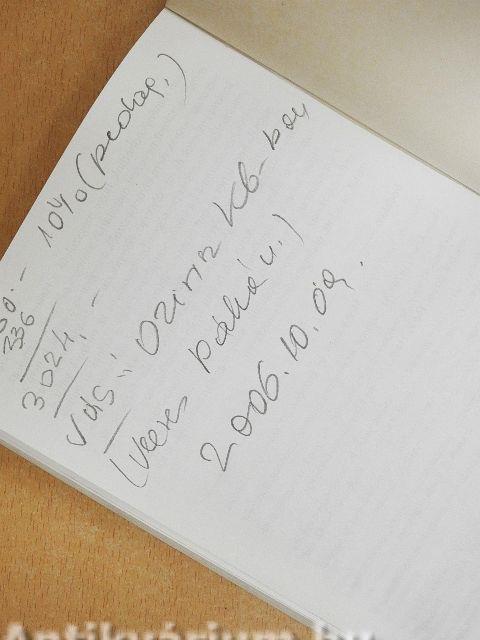 - 10% (pedag.)
336
3024,-
Vás.: Ozirisz Kb-ban
(Veres Pálné u.)
2006.10.09.
Antikvárium.hu